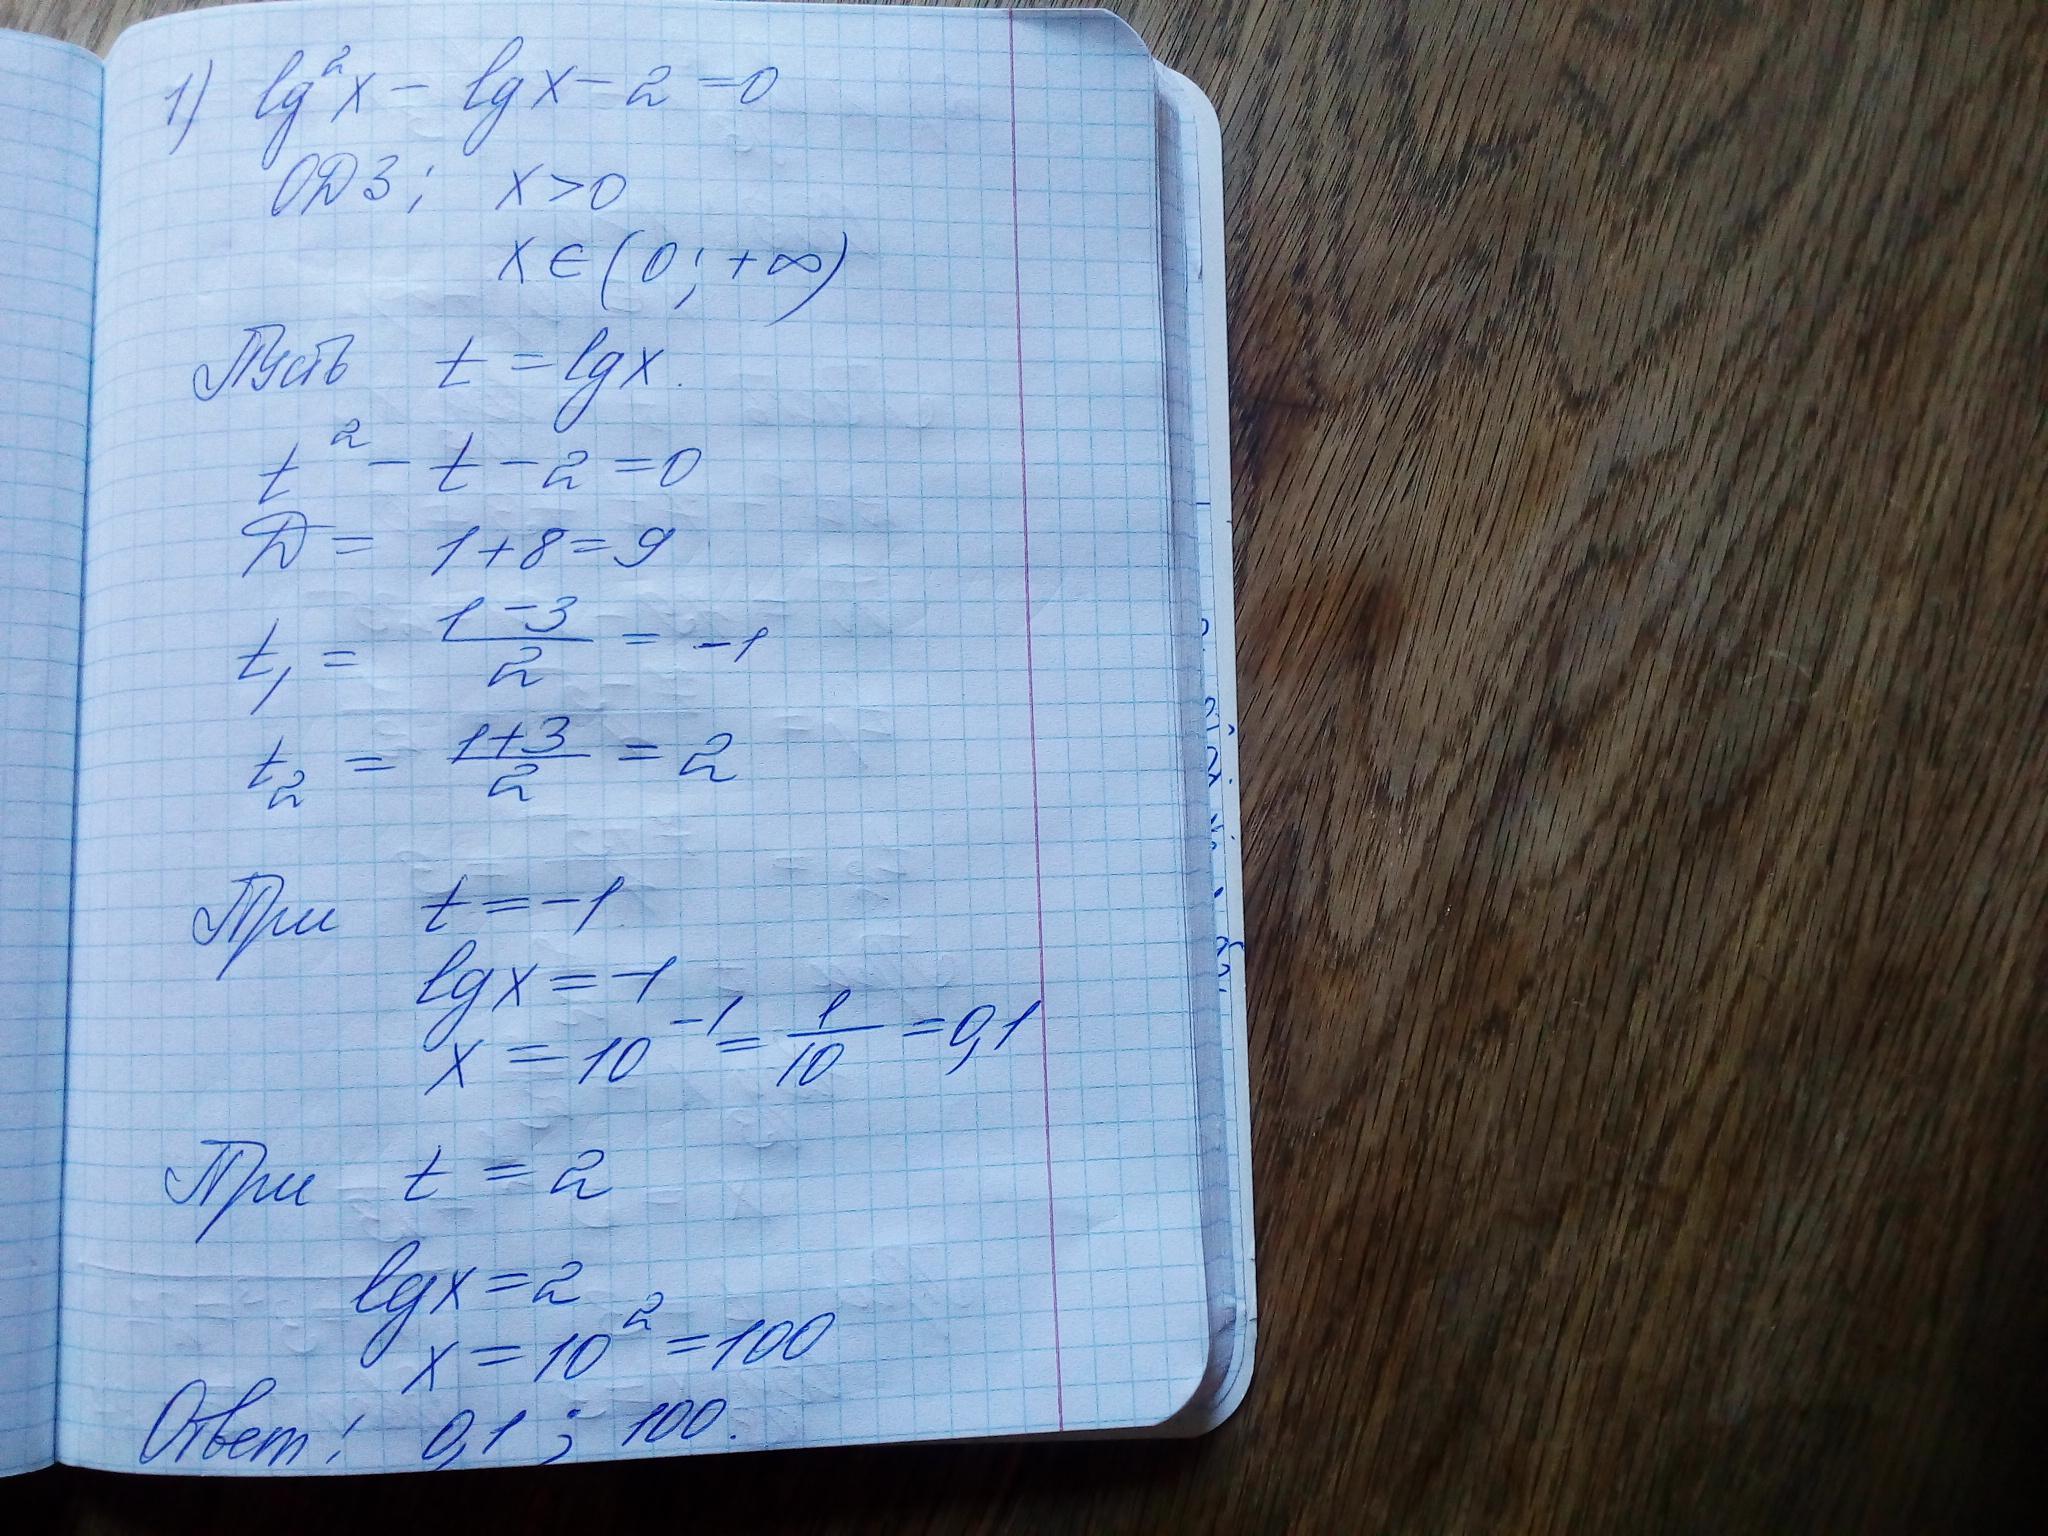 1) lg²x - lgx - 2 = 0
ОДЗ: x > 0
x ∈ (0; +∞)
Пусть t = lgx.
t² - t - 2 = 0
Д = 1 + 8 = 9
t₁ = (1 - 3)/2 = -1
t₂ = (1 + 3)/2 = 2
При t = -1
lgx = -1
x = 10⁻¹ = 1/10 = 0,1
При t = 2
lgx = 2
x = 10² = 100
Ответ: 0,1 ; 100.